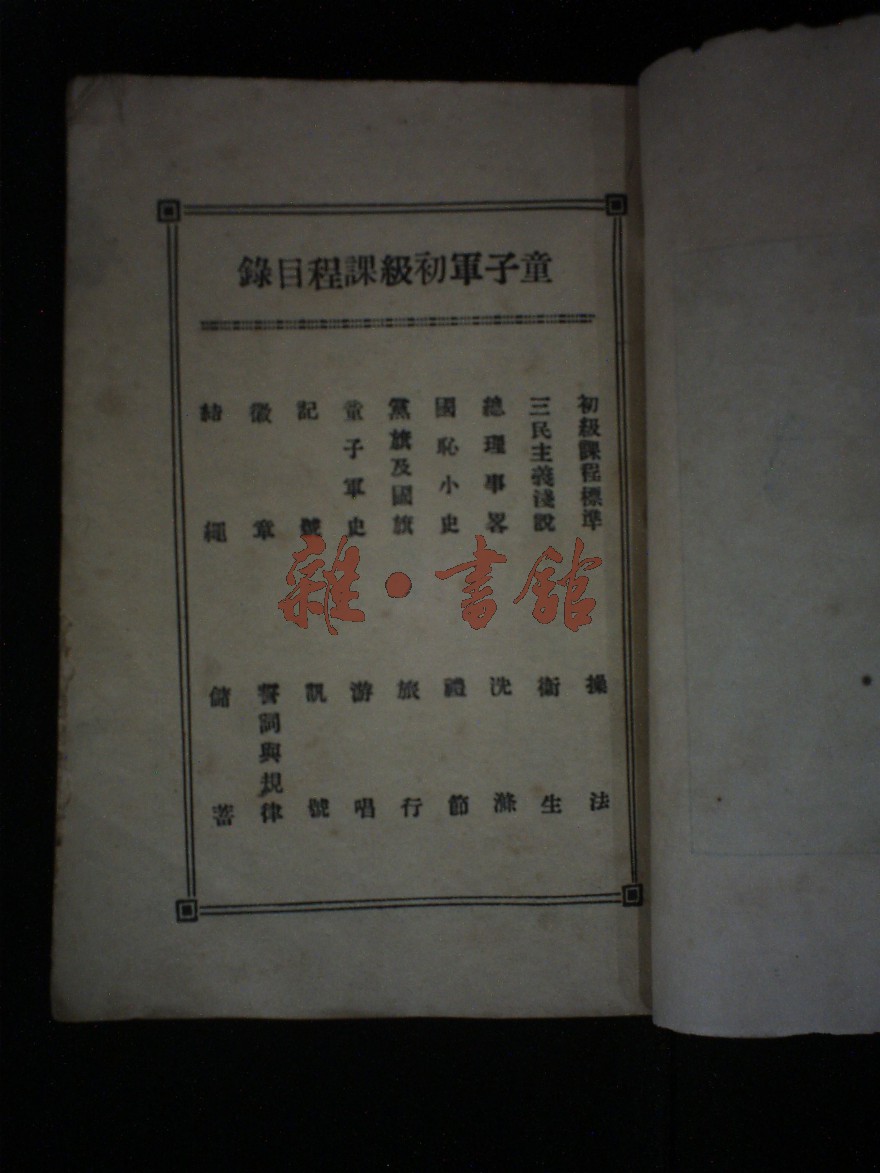 童子軍初級課程目錄
初級課程標準
三民主義淺說
總理事畧
國恥小史
黨旗及國旗
童子軍史
記號
徽章
結繩
操法
衛生
洗滌
禮節
旅行
游唱
訊號
誓詞與規律
儲蓄
雜·書館